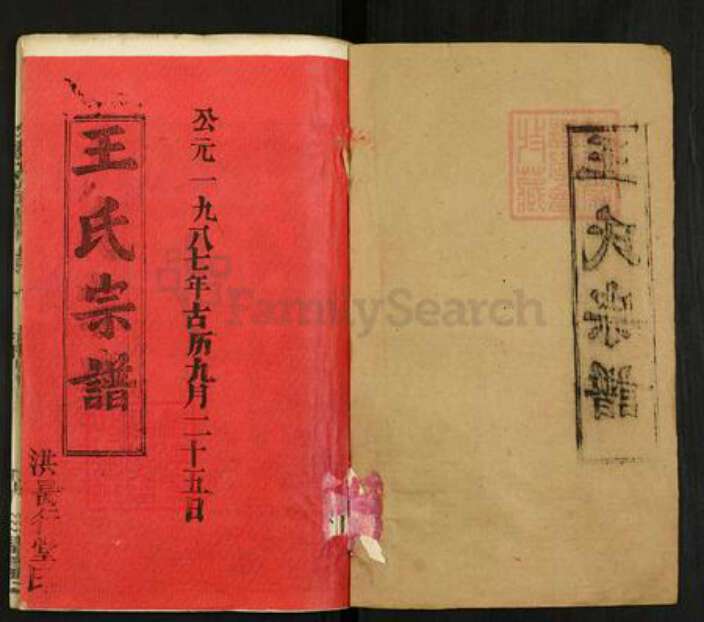 王氏宗譜
公元一九八七年古历九月二十五日
王氏宗譜
FamilySearch